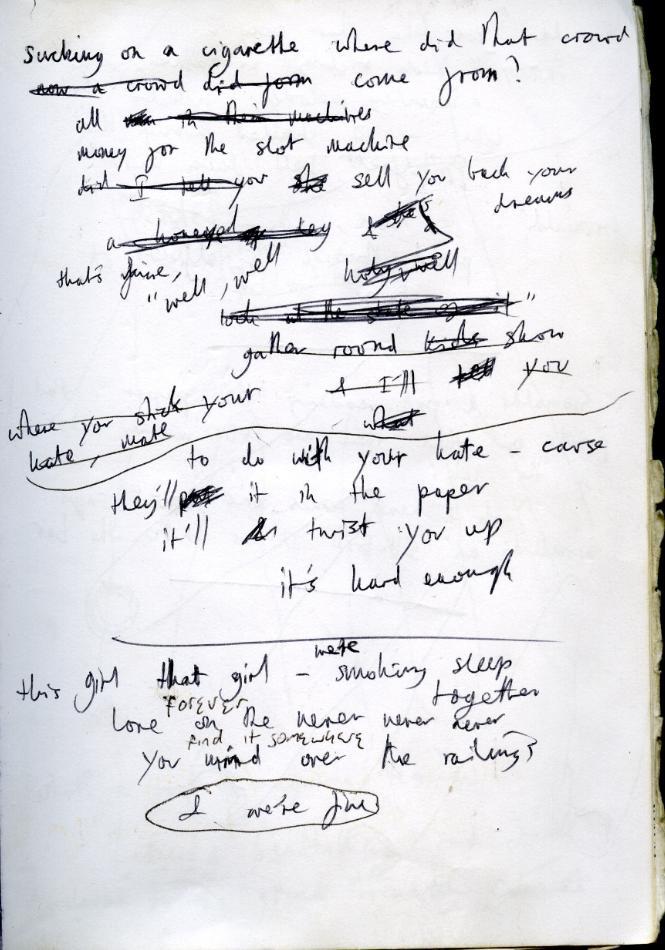 sucking on a cigarette where did that crowd
now a crowd did form come from?
all in their machines
money for the slot machine
did I tell you she sell you back your
dreams
a honeyed key & she's
that's fine,
"well, well
holy well
look at the state of it"
gather round kids show
& I'll tell you
where you stick your
what
hate, mate
to do with your hate - cause
they'll it in the paper
it'll twist you up
it's hard enough
we're
this girl that girl - smoking sleep
together
forever
love on the never never never
find it somewhere
you mind over the railings
& we're fine